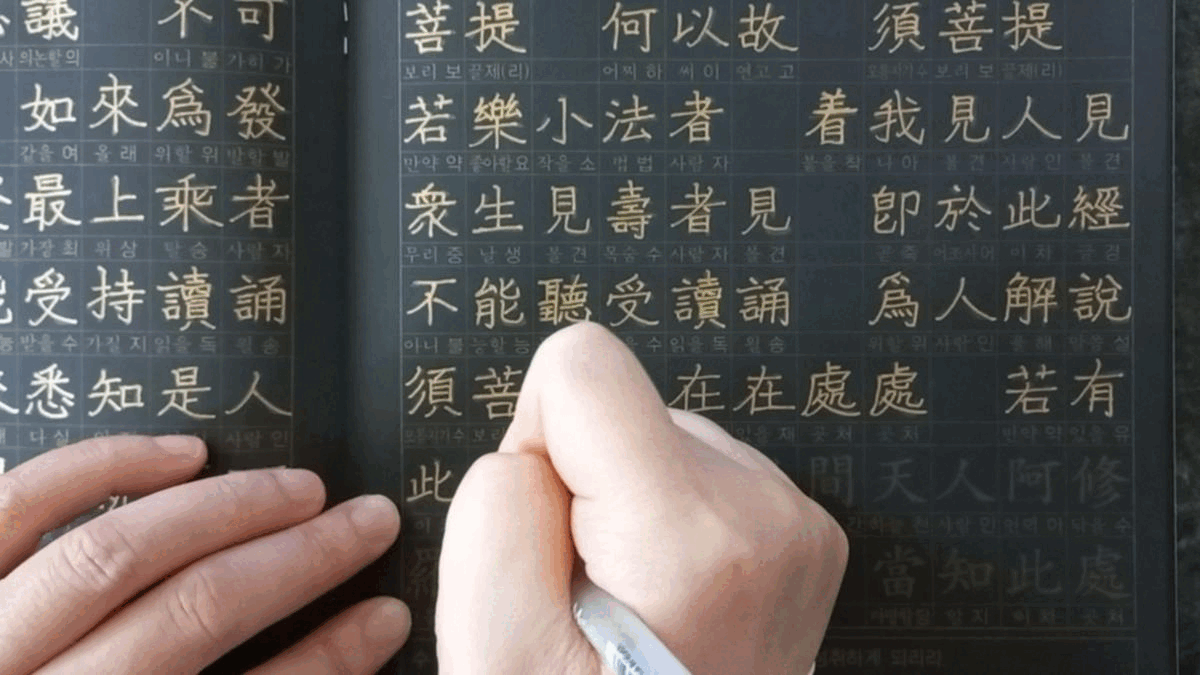 議 不 可
사 의논할 의 이니 불 가히 가
如 來 爲 發
같을 여 올 래 위할 위 발할 발
最 上 乘 者
가장 최 위 상 탈 승 사람 자
受 持 讀 誦
받을 수 가질 지 읽을 독 욀 송
悉 知 是 人
다 실 사람 인
菩 提 何 以 故 須 菩 提
보리 보 끌제(리) 어찌 하 써 이 연고 고 모름지기 수 보리 보 끌제(리)
若 樂 小 法 者 着 我 見 人 見
만약 약 좋아할 요 작을 소 법 법 사람 자 붙을 착 나 아 볼 견 사람 인 볼 견
衆 生 見 壽 者 見 卽 於 此 經
무리 중 날 생 볼 견 목숨 수 사람 자 볼 견 곧 즉 어조사 어 이 차 글 경
不 能 聽 受 讀 誦 爲 人 解 說
아니 불 능할 능 수 읽을 독 욀 송 위할 위 사람 인 풀 해 말씀 설
須 菩 在 在 處 處 若 有
모름지기 수 보리 있을 재 곳 처 곳 처 만약 약 있을 유
此 間 天 人 阿 修
하늘 천 사람 인 언덕 아 닦을 수
羅 當 知 此 處
마땅할 당 알 지 이 차 곳 처
취하게 되리라